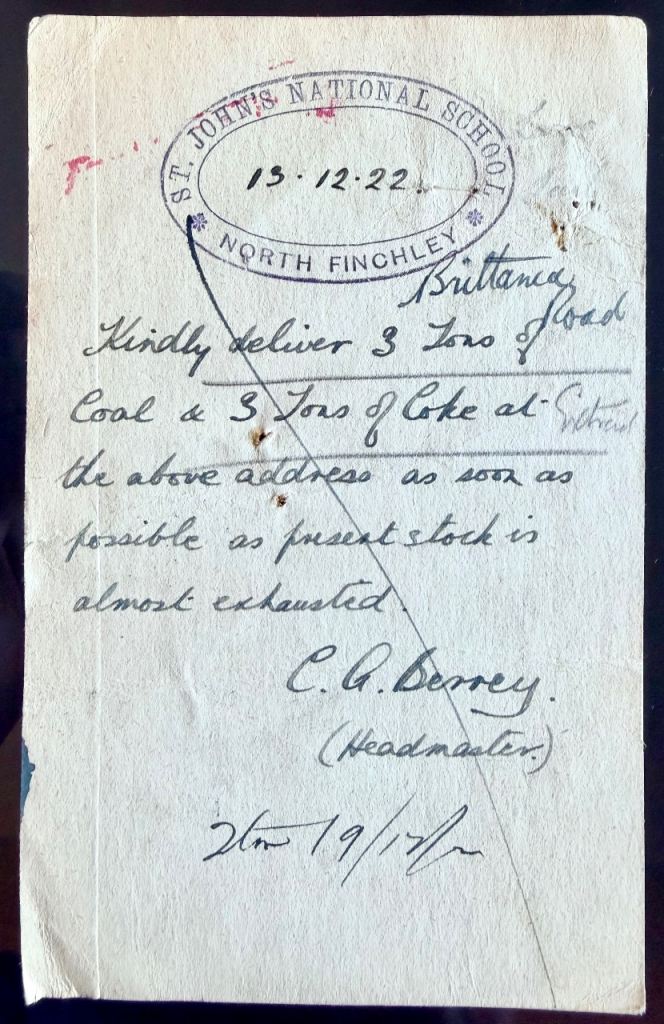 ST. JOHN'S NATIONAL SCHOOL
13.12.22
NORTH FINCHLEY
Brittania
Road
Kindly deliver 3 Tons of
Coal & 3 Tons of Coke at
the above address as soon as
possible as present stock is
almost exhausted.
C. G. Berrey.
(Headmaster.)
19/12/